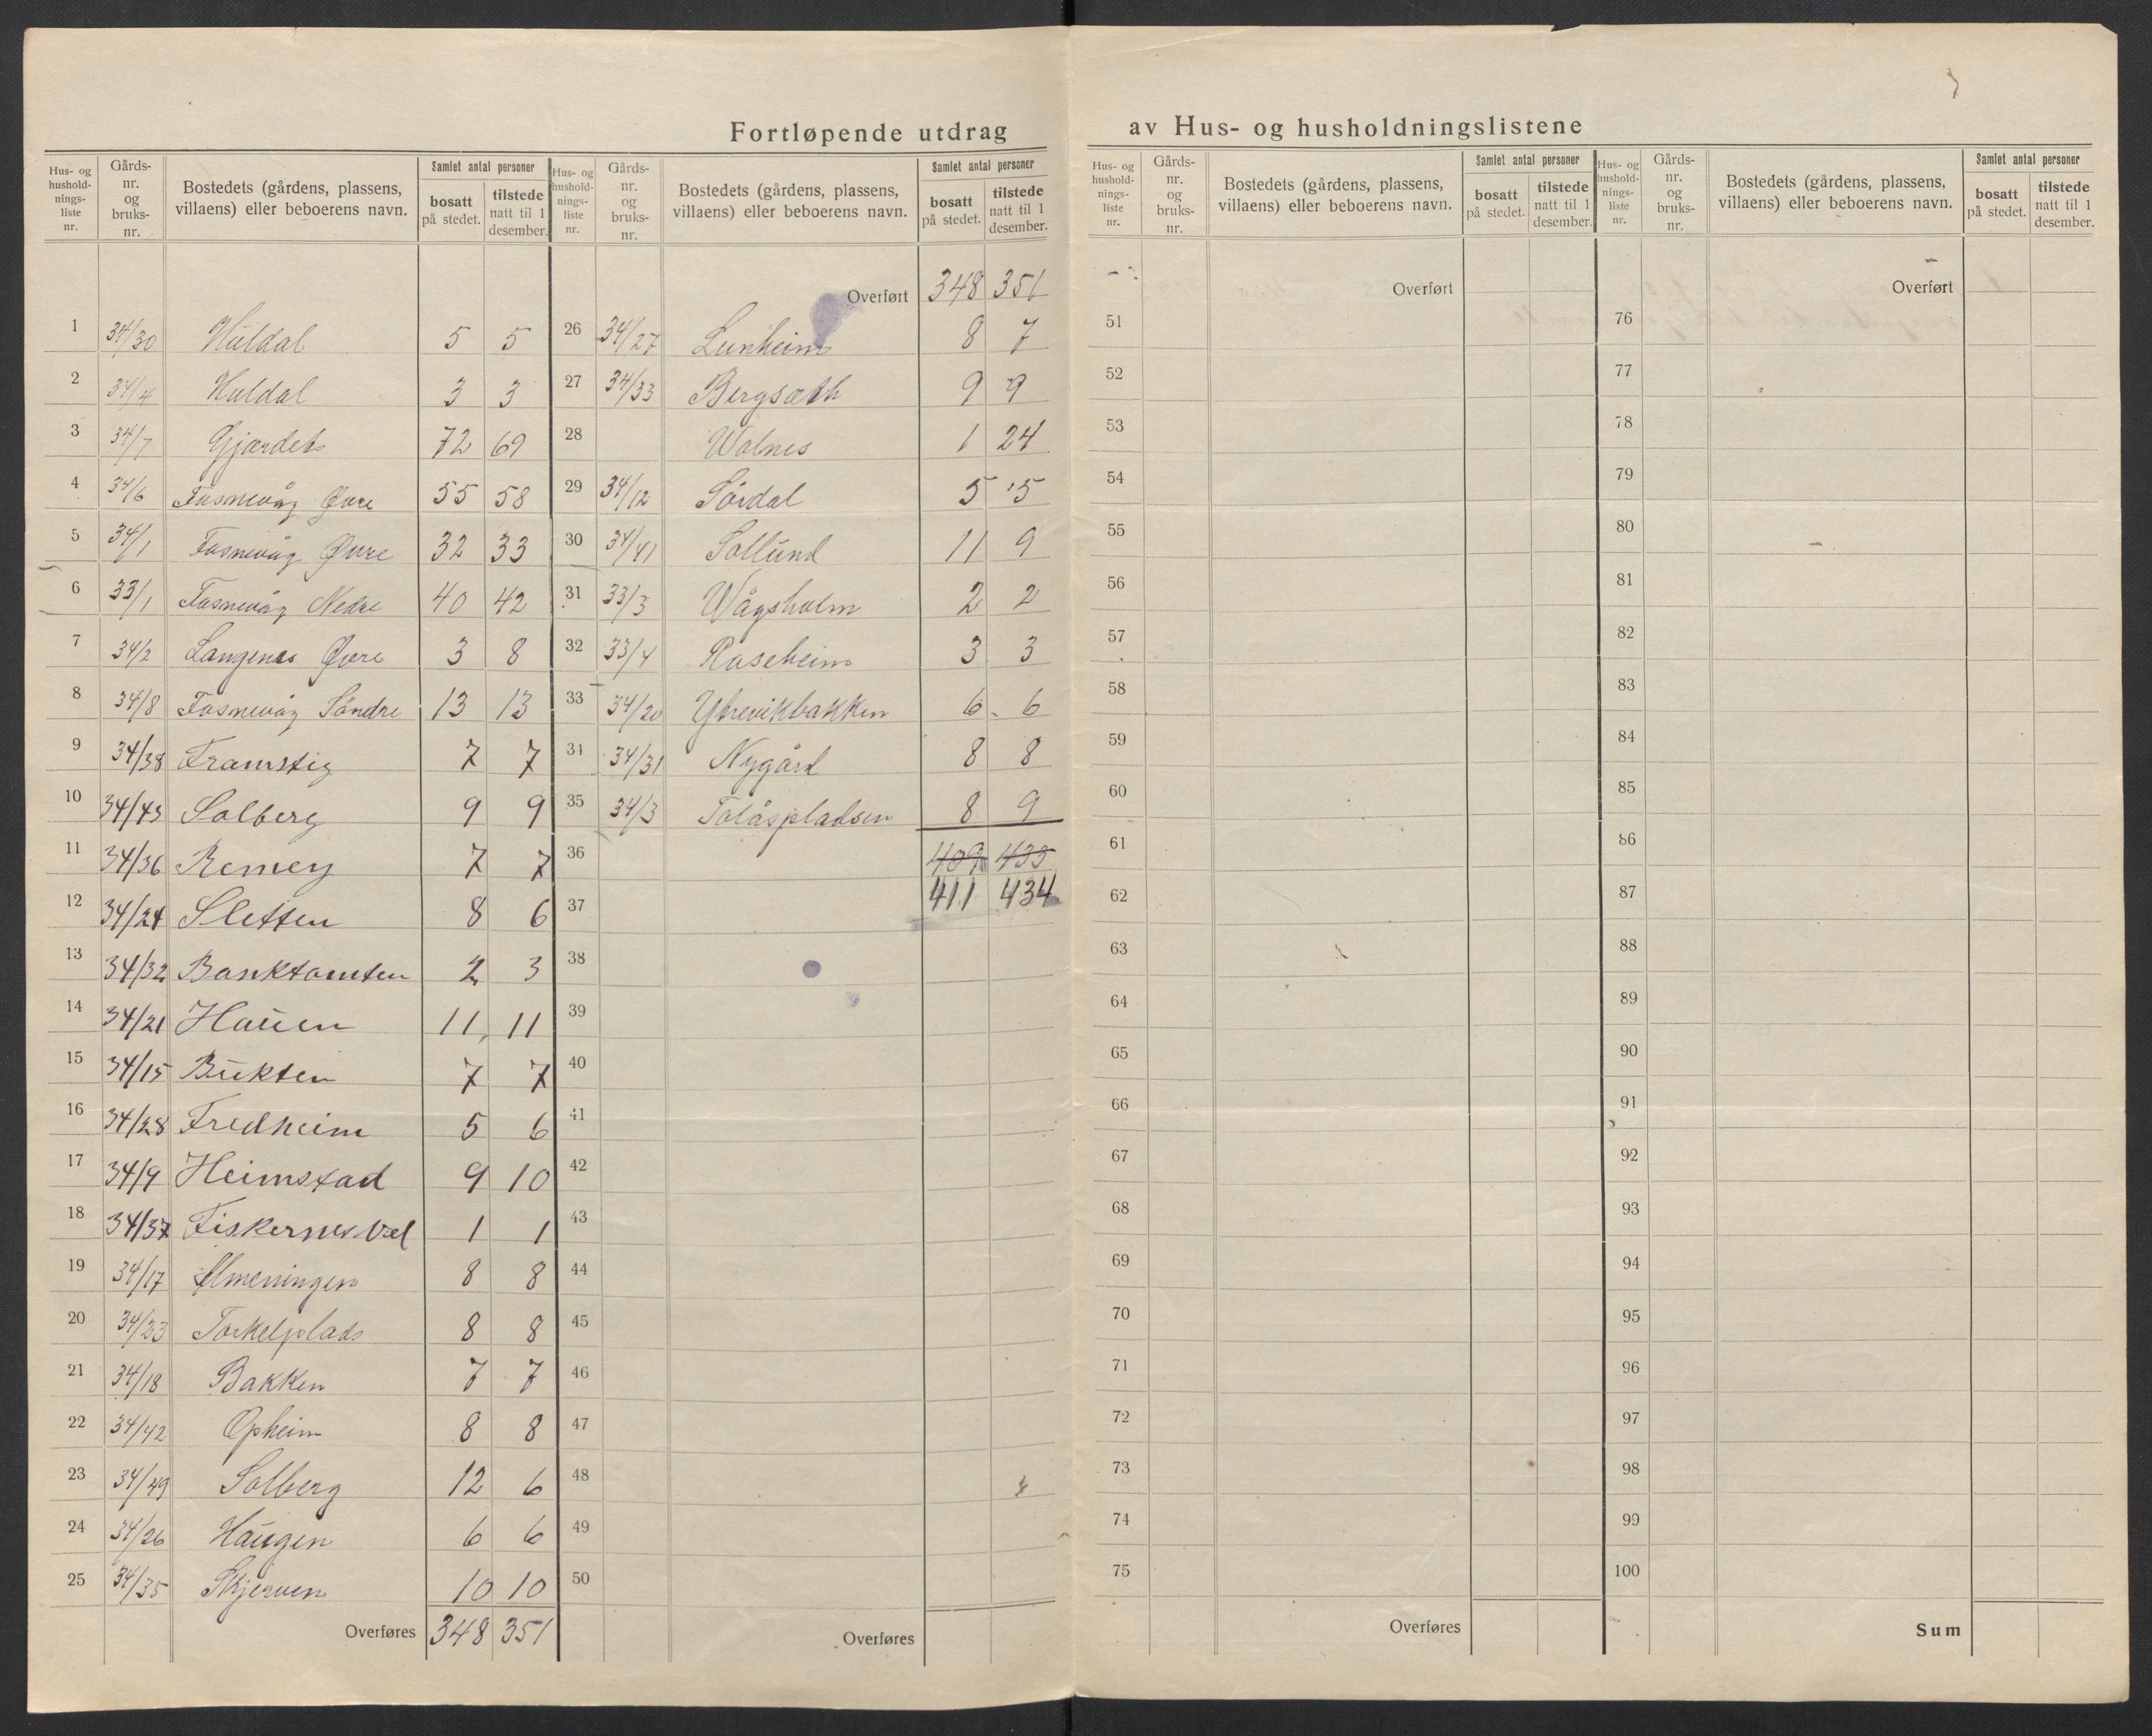 Fortløpende utdrag av Hus- og husholdningslistene
Hus- og hushold-nings-liste nr. Gårds-nr. og bruks-nr. Bostedets (gårdens, plassens, villaens) eller beboerens navn. Samlet antal personer bosatt på stedet. tilstede natt til 1 desember.
1 34/30 Huldal 5 5
2 34/4 Huldal 3 3
3 34/7 Gjærdet 72 69
4 34/6 Fosnevåg Øvre 55 58
5 34/1 Fosnevåg Øvre 32 33
6 33/1 Fosnevåg Nedre 40 42
7 34/2 Langenes Øvre 3 8
8 34/8 Fosnevåg Söndre 13 13
9 34/38 Framstig 7 7
10 34/43 Solberg 9 9
11 34/36 Remøy 7 7
12 34/24 Sletten 8 6
13 34/32 Banktomten 2 3
14 34/21 Hauen 11 11
15 34/15 Bukten 7 7
16 34/28 Fredheim 5 6
17 34/9 Heimstad 9 10
18 34/37 Fiskernes Vel 1 1
19 34/17 Almenningen 8 8
20 34/23 Torkelplads 8 8
21 34/18 Bakken 7 7
22 34/42 Opheim 8 8
23 34/49 Solberg 12 6
24 34/26 Haugen 6 6
25 34/35 Skjerven 10 10
Overføres 348 351
Hus- og hushold-nings-liste nr. Gårds-nr. og bruks-nr. Bostedets (gårdens, plassens, villaens) eller beboerens navn. Samlet antal personer bosatt på stedet. tilstede natt til 1 desember.
Overført 348 351
26 34/27 Lunheim 8 7
27 34/33 Bergsæth 9 9
28 Wolnes 1 24
29 34/12 Sördal 5 5
30 34/41 Sollund 11 9
31 33/3 Vågsholm 2 2
32 33/4 Roseheim 3 3
33 34/20 Ytrevikbakken 6 6
34 34/31 Nygård 8 8
35 34/3 Tolåspladsen 8 9
36 409 435
37 411 434
38
39
40
41
42
43
44
45
46
47
48
49
50
Overføres
Hus- og hushold-nings-liste nr. Gårds-nr. og bruks-nr. Bostedets (gårdens, plassens, villaens) eller beboerens navn. Samlet antal personer bosatt på stedet. tilstede natt til 1 desember.
Overført
51
52
53
54
55
56
57
58
59
60
61
62
63
64
65
66
67
68
69
70
71
72
73
74
75
Overføres
Hus- og hushold-nings-liste nr. Gårds-nr. og bruks-nr. Bostedets (gårdens, plassens, villaens) eller beboerens navn. Samlet antal personer bosatt på stedet. tilstede natt til 1 desember.
Overført
76
77
78
79
80
81
82
83
84
85
86
87
88
89
90
91
92
93
94
95
96
97
98
99
100
Sum